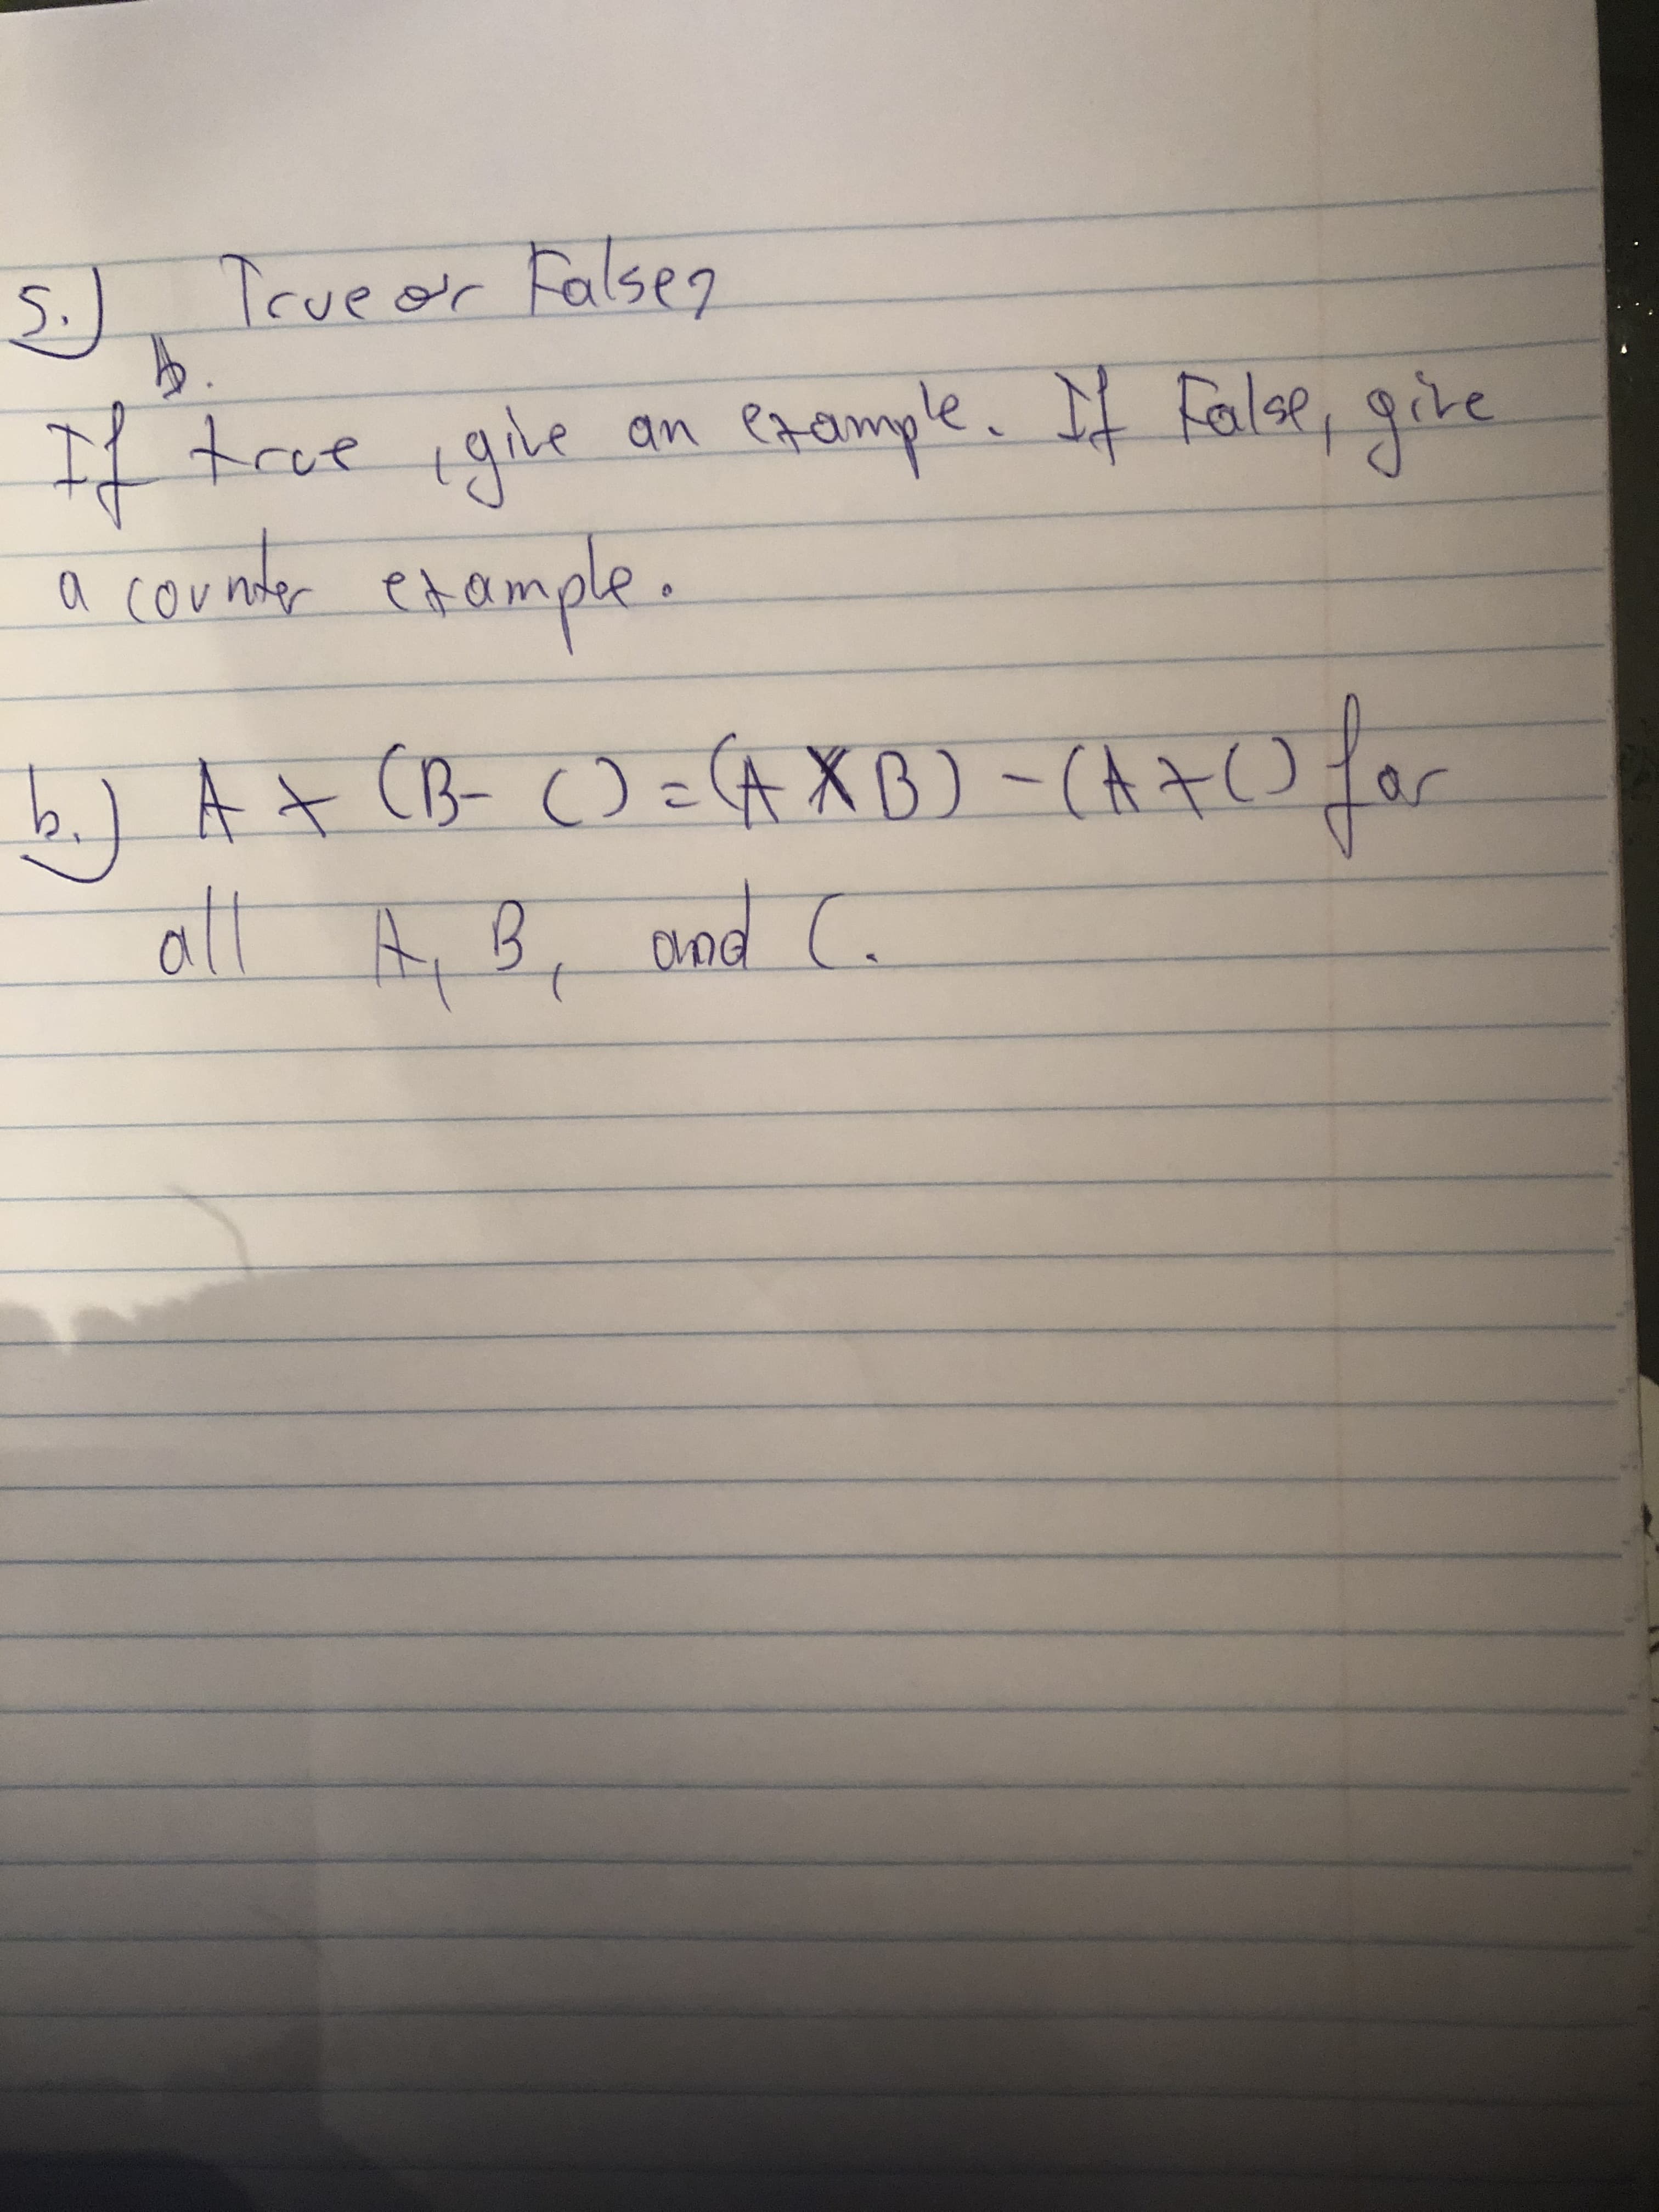 5.) True or False?
b.
If true, give an example. If False, give
a counter example.
b.) A × (B - C) = (A X B) - (A × C) for
all A, B, and C.